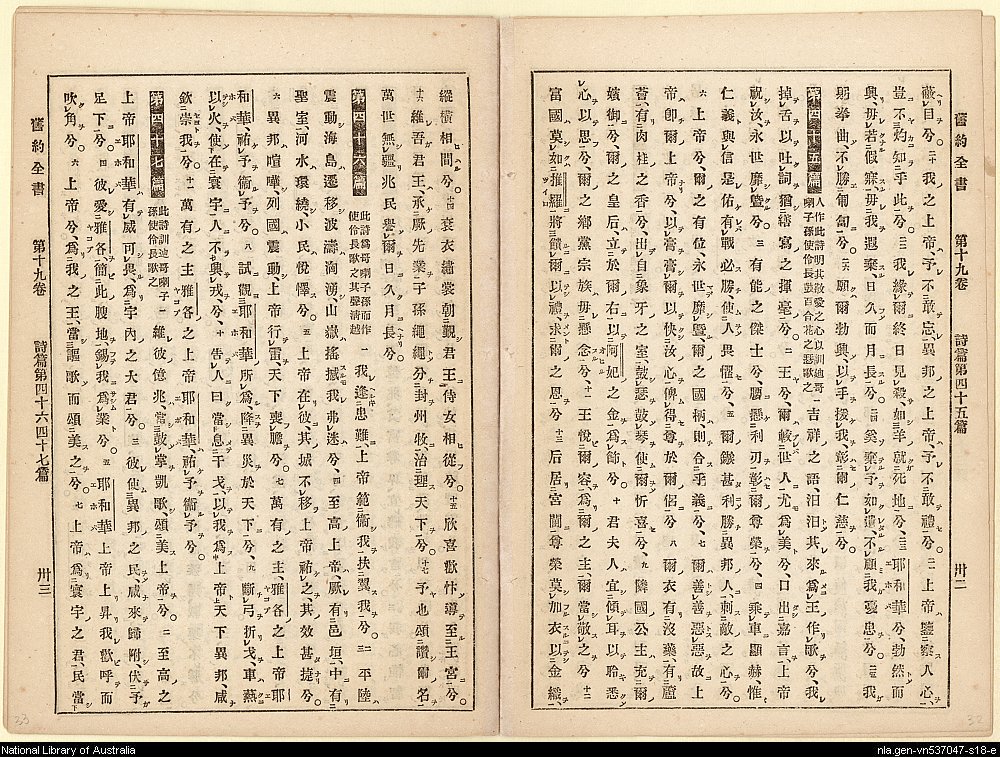 舊約全書 第十九卷 詩篇第四十五篇 卅二
蔽目兮。二十我之上帝、予不敢忘、異邦之上帝、予不敢禮兮。二一上帝鑒察人心、
豈不灼知乎此兮。二二我緣爾終日見殺、如羊就死地兮、二三耶和華兮、勃然而
興、毋若假寐、毋我遐棄、日久而月長兮。二四奚棄予如遺、不顧我憂患兮。二五我
躬拳曲、不勝匍匐兮。二六願爾勃興、以手援我、彰爾仁慈兮。
第四十五篇 人作此詩明其敬愛之心以訓迪哥喇子孫使伶長鼓百合花之瑟歌之 一吉祥之語、汨汨其來、爲王作歌兮、我
掉舌以吐詞、猶繕寫之揮毫兮。二王兮、爾較世人尤爲美兮、口出嘉言、上帝
祝汝永世靡曁兮。三有能之傑士兮、腰懸利刃、彰爾尊榮兮。四乘車顯赫、惟
仁義與信是佑、有戰必勝、使人畏懼兮、五爾鏃甚利、勝異邦人、刺敵之心兮。
六上帝兮、爾之有位、永世靡曁、爾之國柄、則合乎義兮、七爾善善惡惡、故上
帝卽爾上帝兮、以膏膏爾、以快汝心、俾得尊於爾侶兮、八爾衣有沒藥、有蘆
薈、有肉桂之香兮、出自象牙之室、鼓瑟鼓琴、使爾忻喜兮、九隣國公主、充爾
嬪御兮、爾之皇后、立於爾右、以阿妃之金爲飾兮。十君夫人宜傾耳以聆、悉
心以思兮、爾之鄕黨宗族、毋懸念兮、十一王悅爾容、爲爾之主、爾當敬之兮、十二
富國莫如推羅、將饋爾以禮、求爾之恩兮。十三后居宮闈、尊榮莫加、衣以金織、
舊約全書 第十九卷 詩篇第四十六四十七篇 卅三
縱橫相間兮。十四衮衣繡裳、朝覲君王、侍女相從兮。十五欣喜歡忭、導至王宮兮。
十六維吾君王、承厥先業、子孫繩繩兮、封州牧、治理天下兮。十七予也頌讚爾名、
萬世無疆、兆民譽爾、日久月長兮。
第四十六篇 此詩爲哥喇子孫而作使伶長歌之其聲淸越 一我逢患難、上帝範衞我、扶翼我兮。二平陸
震動、海島遷移、波濤洶湧、山嶽搖撼、我弗迷兮、四至高上帝、厥有邑垣、中有
聖室、河水環繞、小民悅懌兮。五上帝在彼、其城不移、上帝祐之、其效甚捷兮。
六異邦喧嘩、列國震動、上帝行雷、天下喪膽兮。七萬有之主、雅各之上帝耶
和華、祐予衞予兮。八試觀耶和華所爲、降異災於天下兮、九斷弓折戈、車燕
以火、使在寰宇、人不興戎兮、十吿人曰、當息干戈、以我爲上帝、天下異邦咸
欽崇我兮。十一萬有之主、雅各之上帝耶和華、祐予衞予兮。
第四十七篇 此詩訓迪哥喇子孫使伶長歌之 一維彼億兆、當鼓掌凱歌、頌美上帝兮。二至高之
上帝耶和華、有威可畏、爲宇內之大君兮。三彼使異邦之民、咸來歸附、伏予
足下兮。四彼愛雅各、簡此腴地、錫我爲業兮。五耶和華上帝上昇、我歡呼而
吹角兮。六上帝兮、爲我之王、當謳歌而頌美之兮。七上帝爲寰宇之君、民當
33
32
National Library of Australia
nla.gen-vn537047-s18-e